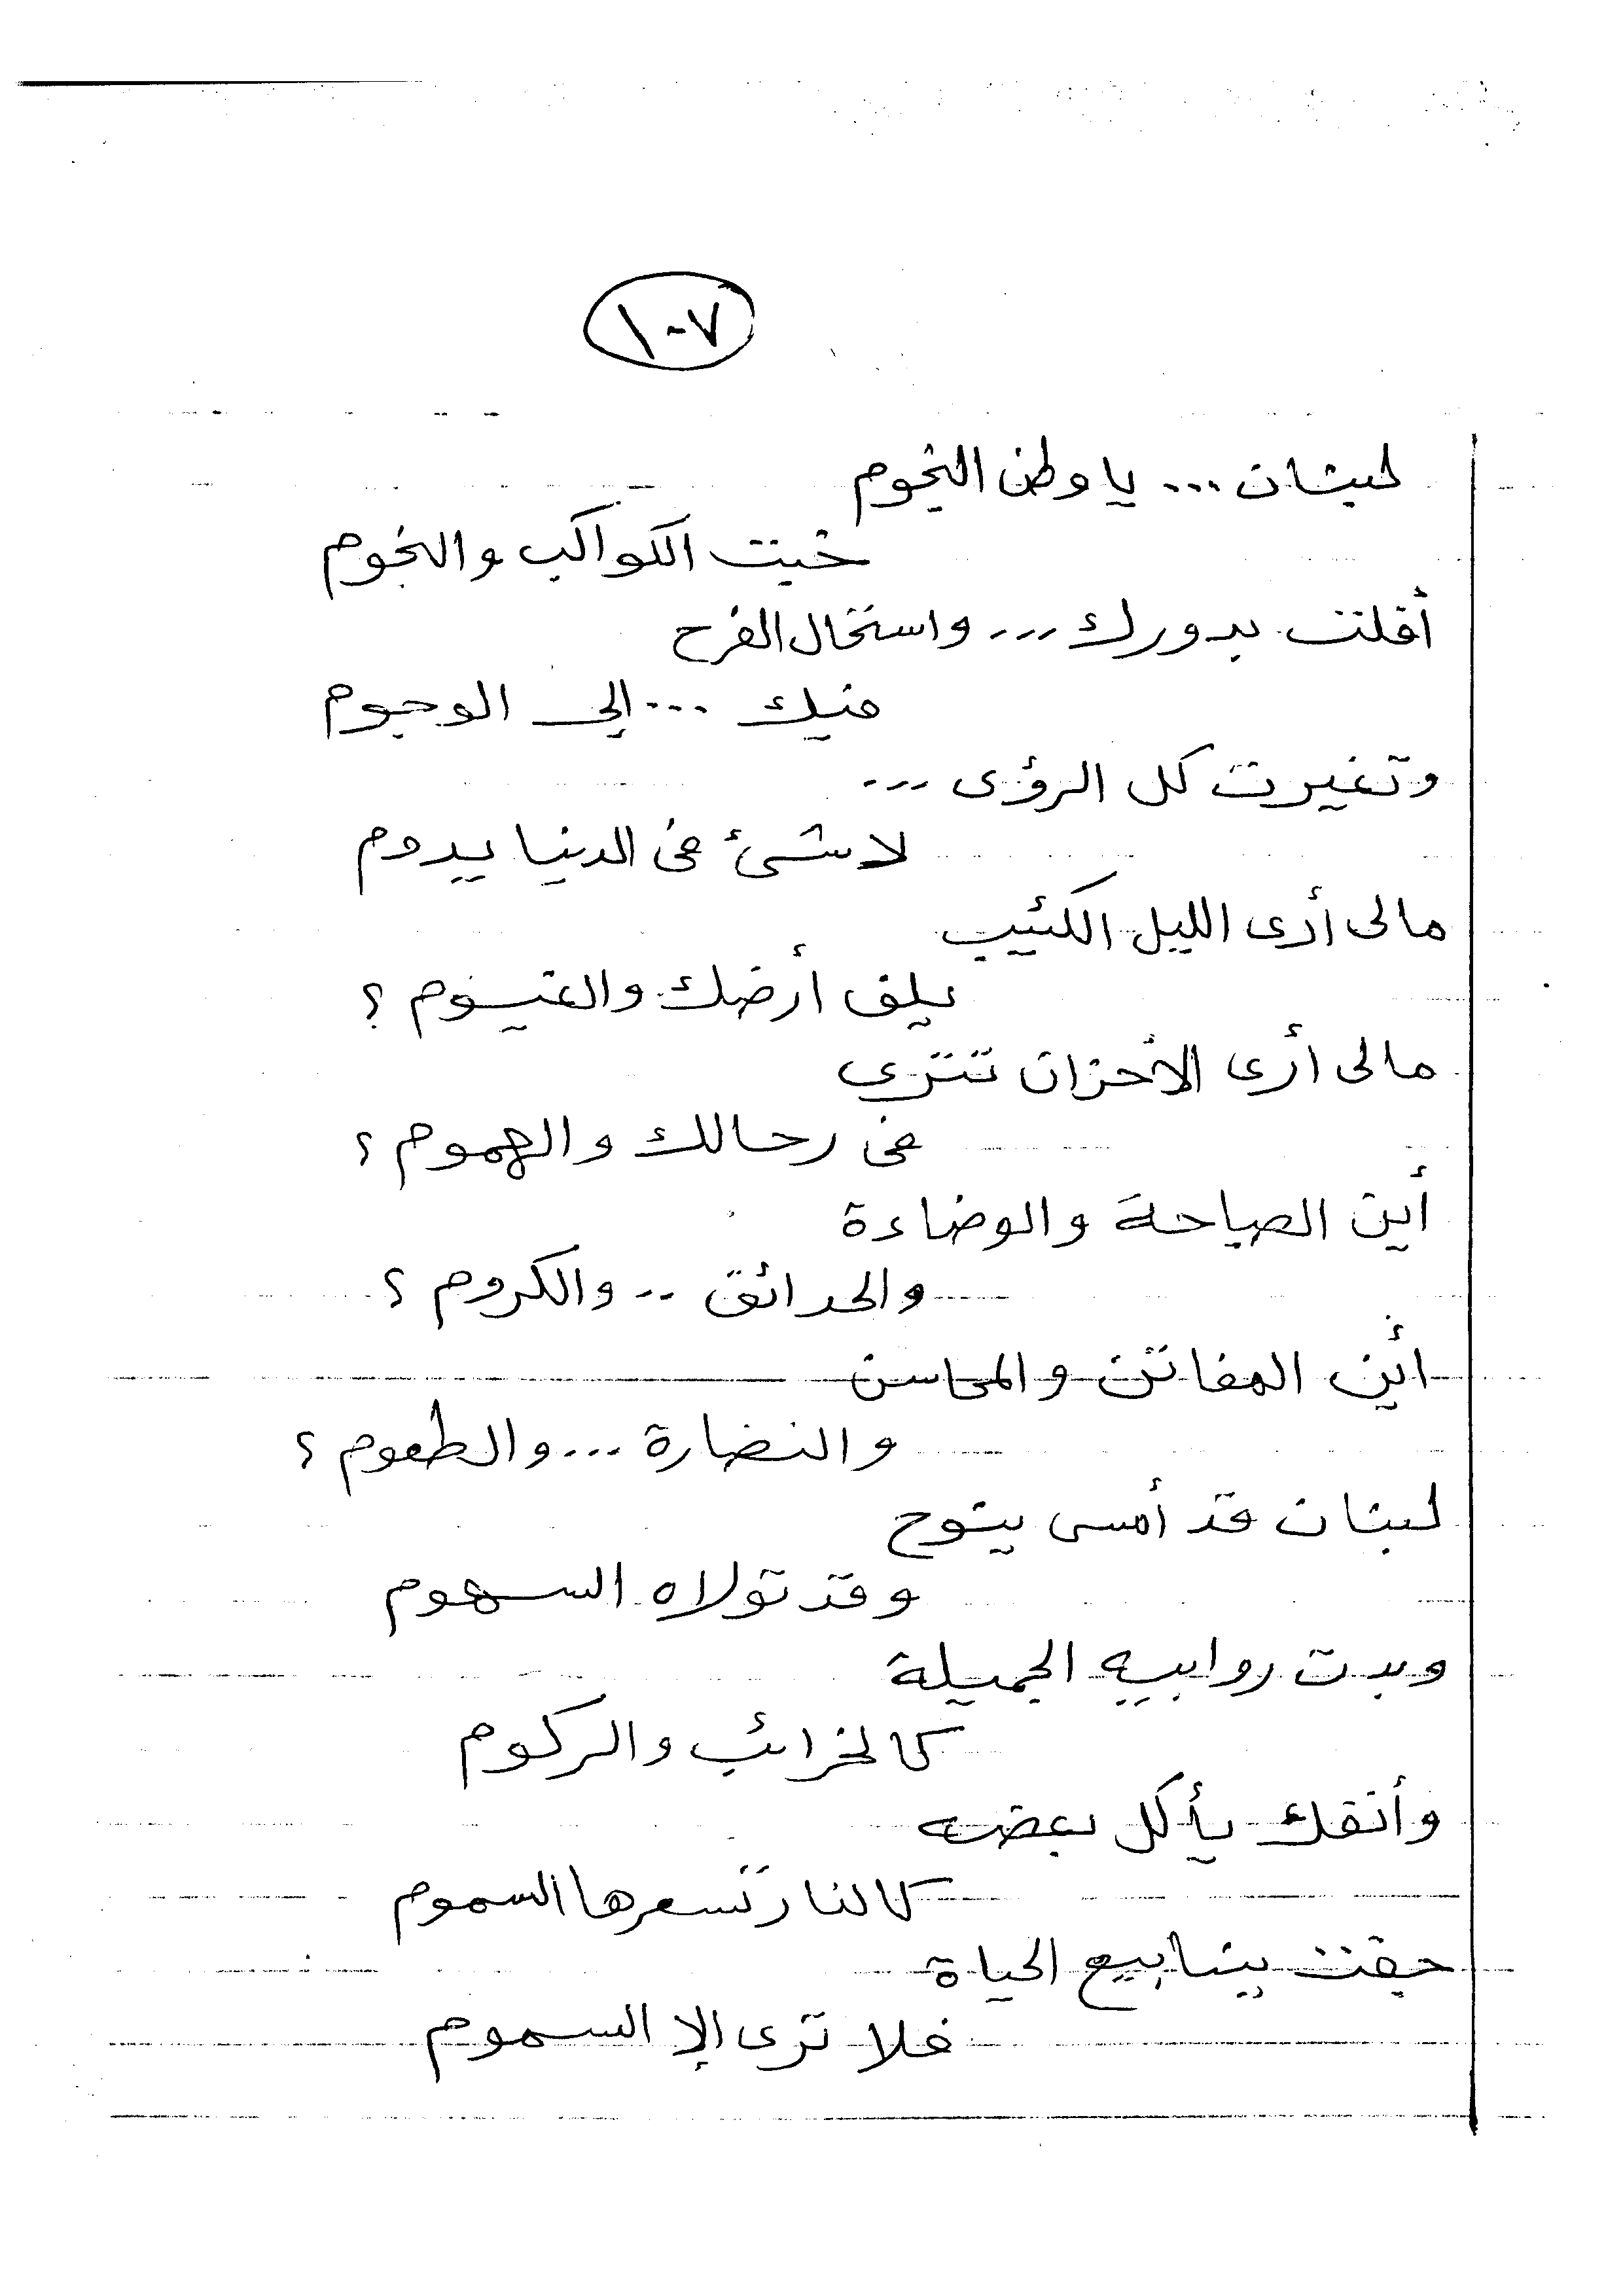 ١٠٧
لبنان ... يا وطن النجوم
خبت الكواكب والنجوم
أفلت بدورك ... واستحال الفرح
منك ... إلى الوجوم
وتغيرت كل الرؤى ...
لا شئ فى الدنيا يدوم
مالى أرى الليل الكئيب
يلف أرضك والغيوم ؟
مالى أرى الأحزان تترى
فى رحالك والهموم ؟
أين الصباحة والوضاءة
والحدائق .. والكروم ؟
أين المفاتن والمحاسن
والنضارة ... والطعوم ؟
لبنان قد أمسى ينوح
وقد تولاه السهوم
وبدت روابيه الجميلة
كالخرائب والركوم
يأكل بعضه
كالنار تسعرها السموم
جفت ينابيع الحياة
فلا ترى إلا السموم